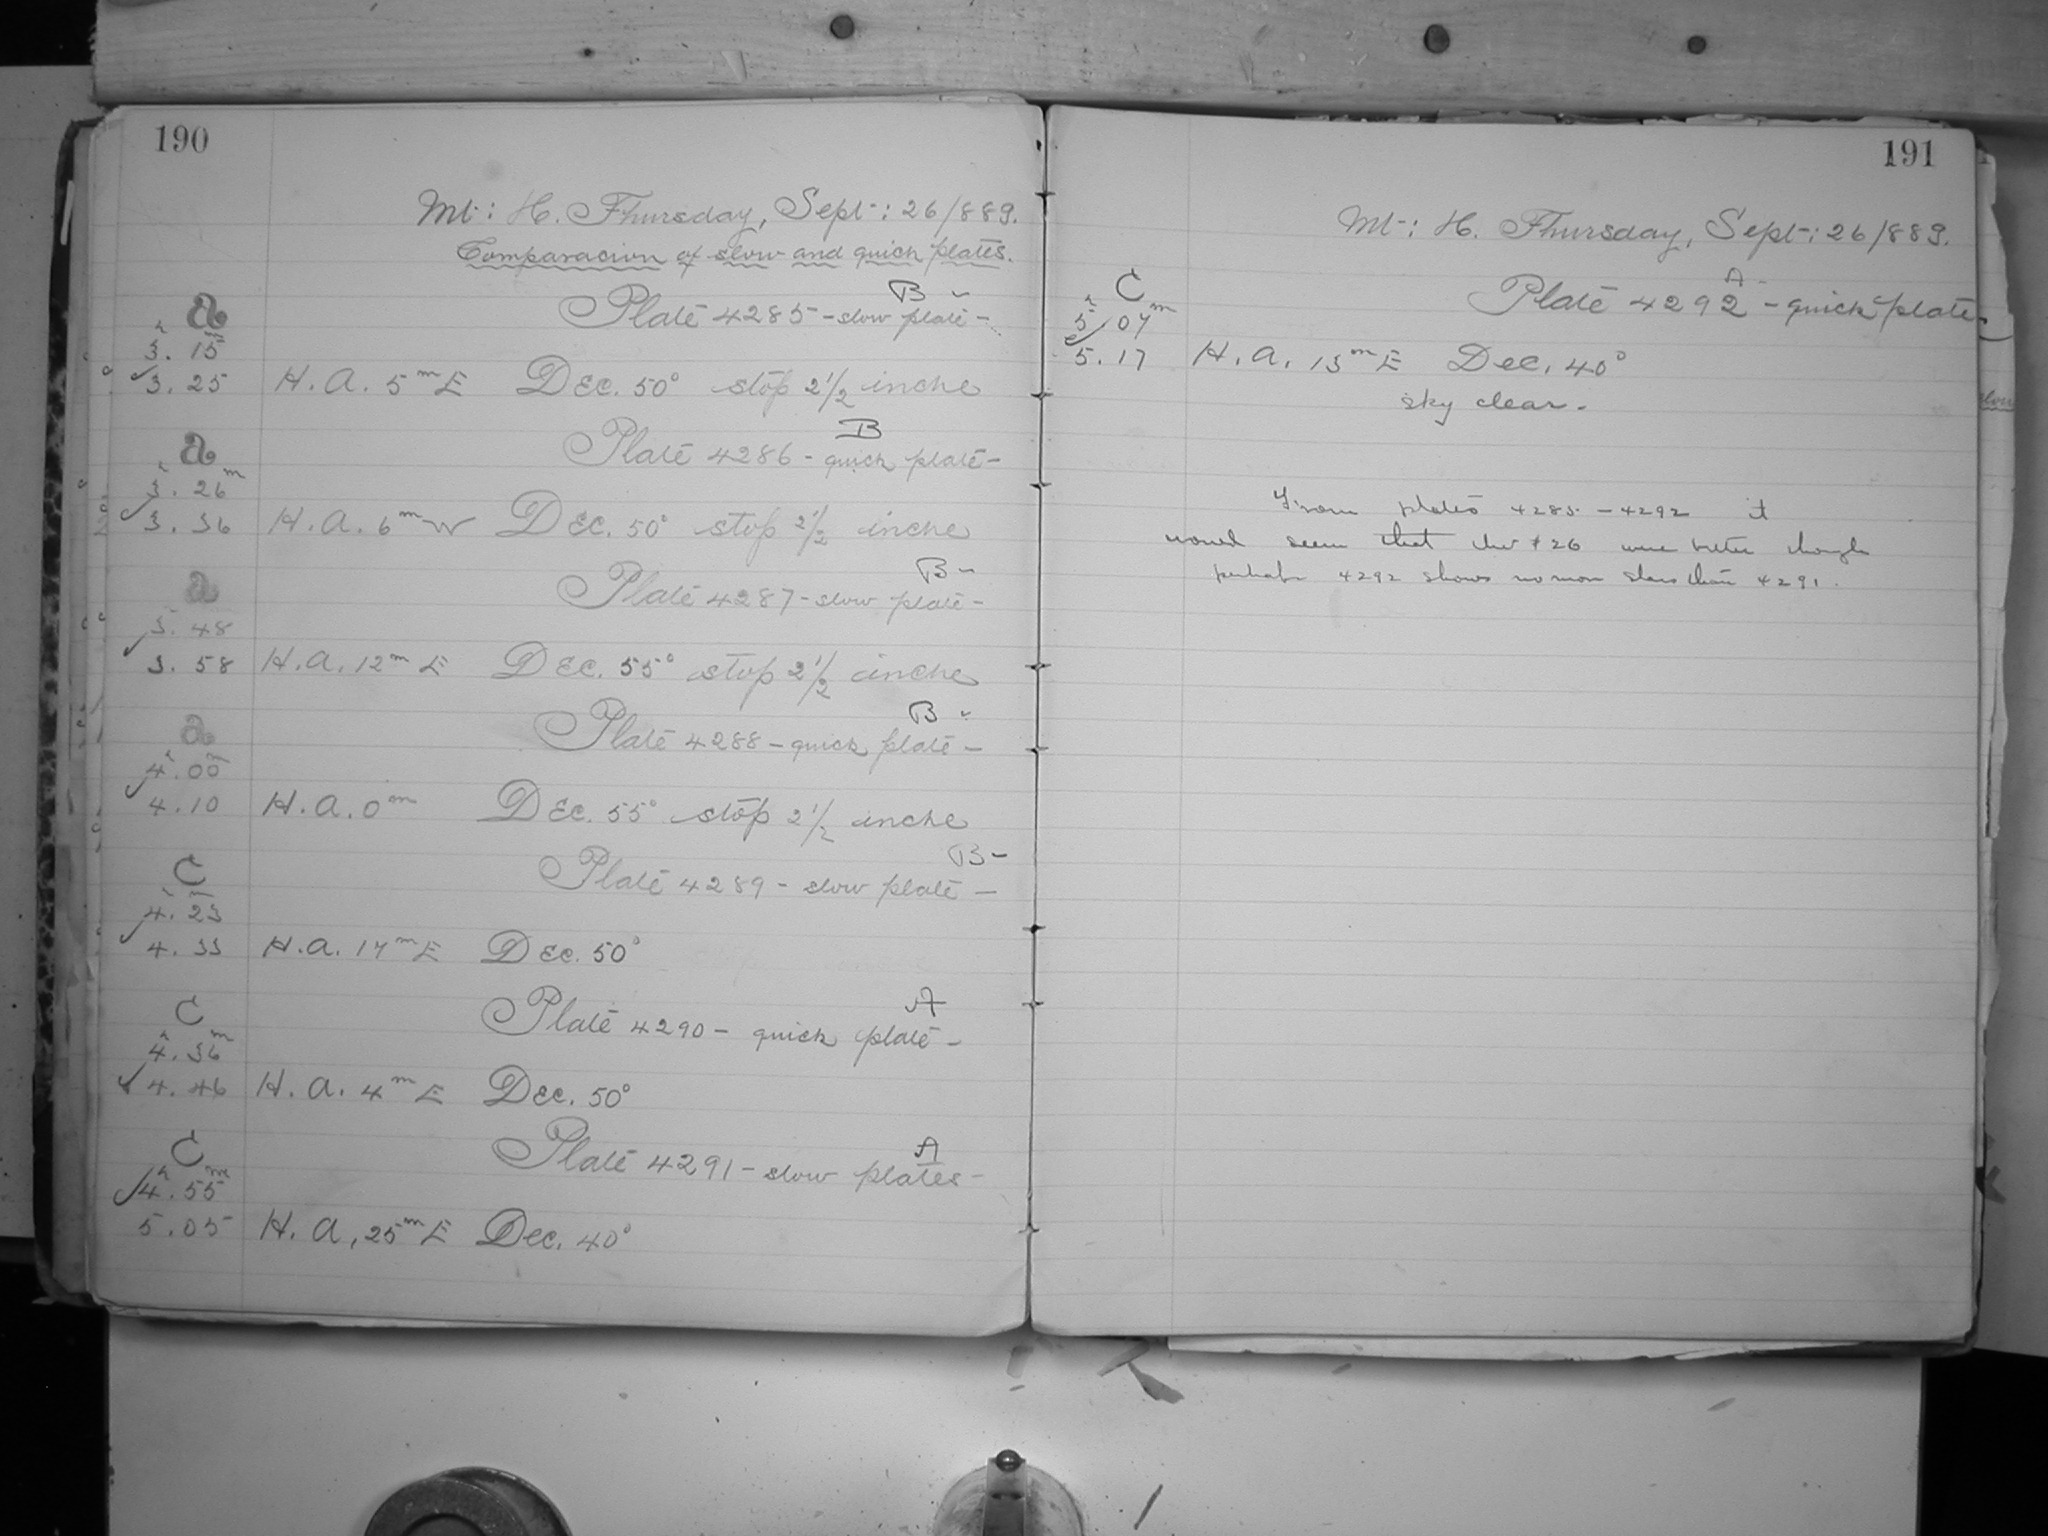 190
Mt: H. Thursday, Sept: 26/889.
Comparacion of slow and quick plates.
B -
a Plate 4285 - slow plate -
h m
3. 15
3. 25 H. A. 5m E Dec. 50° stop 2 1/2 inche
B
a Plate 4286 - quick plate -
h m
3. 26
3. 36 H. A. 6m W Dec. 50° stop 2 1/2 inche
B -
a Plate 4287 - slow plate -
3. 48
3. 58 H. A. 12m E Dec. 55° stop 2 1/2 inche
B -
a Plate 4288 - quick plate -
h m
4. 00
4. 10 H. A. 0m Dec. 55° stop 2 1/2 inche
B -
C Plate 4289 - slow plate -
h m
4. 23
4. 33 H. A. 17m E Dec. 50°
A
C Plate 4290 - quick plate -
h m
4. 36
4. 46 H. A. 4m E Dec. 50°
A
C Plate 4291 - slow plates -
h m
4. 55
5. 05 H. A. 25m E Dec. 40°
191
Mt: H. Thursday, Sept: 26/889.
A -
C Plate 4292 - quick plate -
h m
5. 07
5. 17 H. A. 13m E Dec. 40°
sky clear -
From plates 4285 - 4292 it
would seem that the # 26 were better though
perhaps 4292 shows no more stars than 4291.